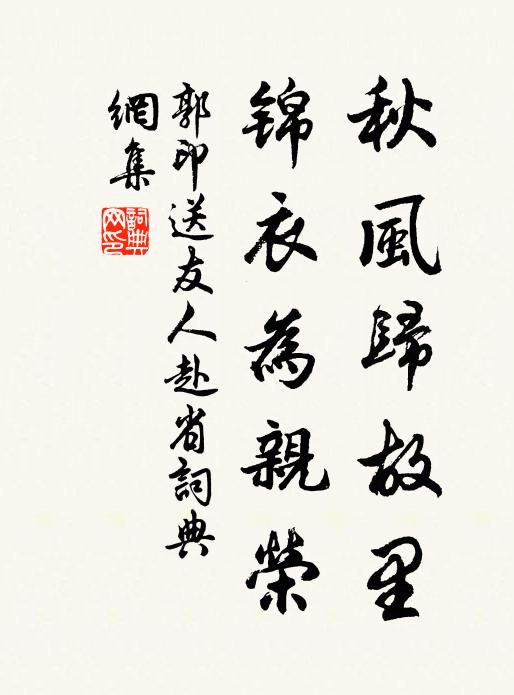 秋風歸故里
锦衣為親榮
郭印送友人赴省詞典
網集
詞典网印